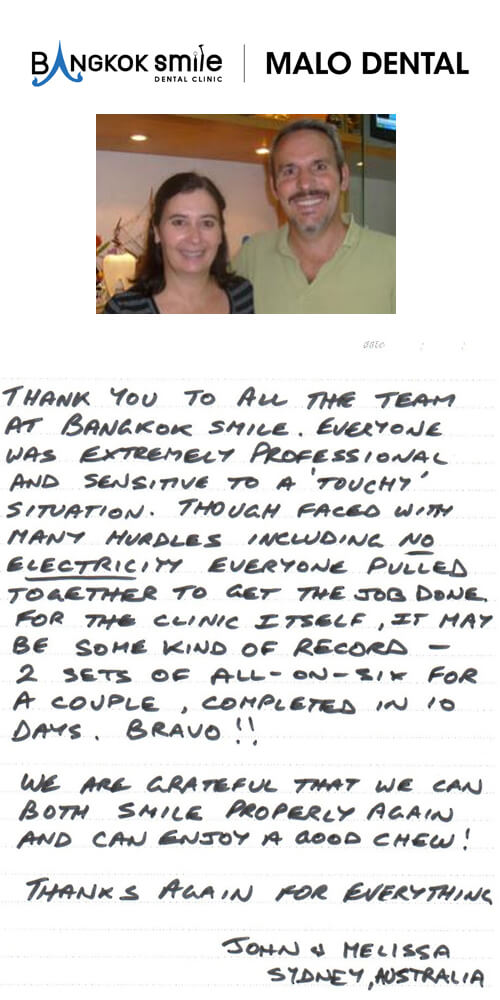 BANGKOK smile
DENTAL CLINIC
MALO DENTAL
date : :
THANK YOU TO ALL THE TEAM
AT BANGKOK SMILE. EVERYONE
WAS EXTREMELY PROFESSIONAL
AND SENSITIVE TO A 'TOUCHY'
SITUATION. THOUGH FACED WITH
MANY HURDLES INCLUDING NO
ELECTRICITY EVERYONE PULLED
TOGETHER TO GET THE JOB DONE.
FOR THE CLINIC ITSELF, IT MAY
BE SOME KIND OF RECORD –
2 SETS OF ALL-ON-SIX FOR
A COUPLE, COMPLETED IN 10
DAYS. BRAVO!!
WE ARE GRATEFUL THAT WE CAN
BOTH SMILE PROPERLY AGAIN
AND CAN ENJOY A GOOD CHEW!
THANKS AGAIN FOR EVERYTHING
JOHN & MELISSA
SYDNEY, AUSTRALIA